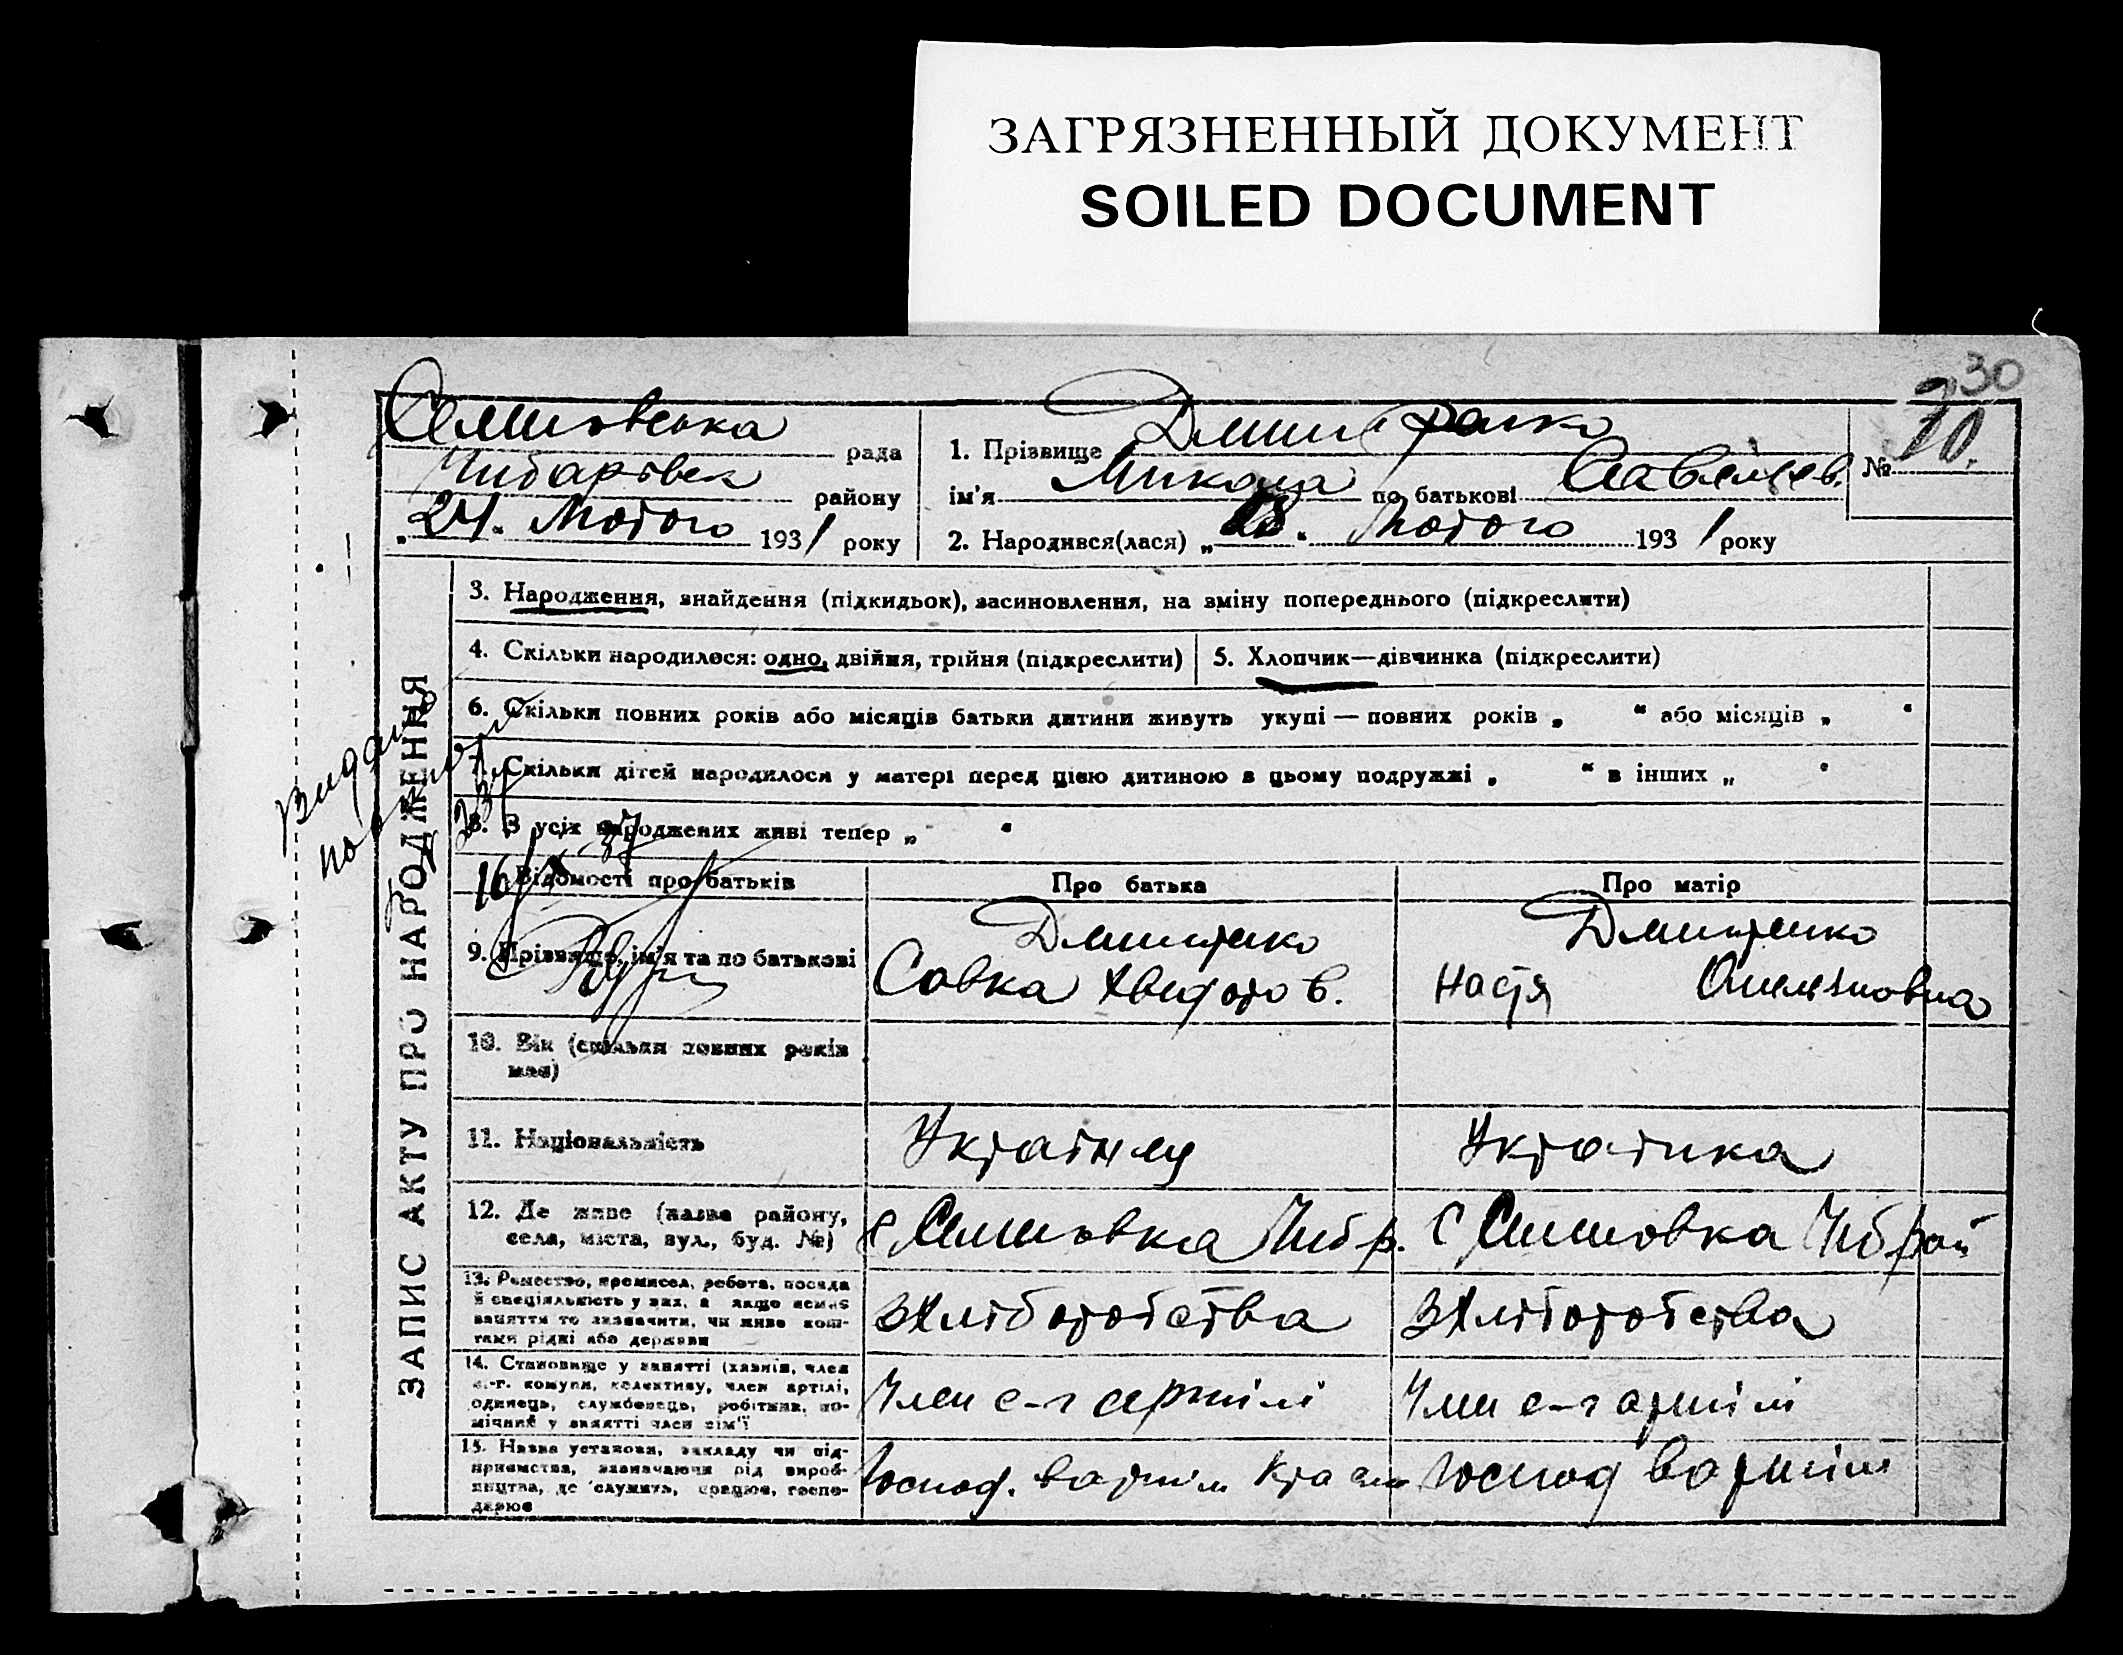 ЗАГРЯЗНЕННЫЙ ДОКУМЕНТ
SOILED DOCUMENT
30
рада
району
„24“ Лютого 1931 року
1. Прізвище
ім'я Микола по батькові
№ 10.
2. Народився(лася) „18“ Лютого 1931 року
ЗАПИС АКТУ ПРО НАРОДЖЕННЯ
3. Народження, знайдення (підкидьок), засиновлення, на зміну попереднього (підкреслити)
4. Скільки народилося: одно, двійня, трійня (підкреслити)
5. Хлопчик—дівчинка (підкреслити)
6. Скільки повних років або місяців батьки дитини живуть укупі — повних років „ “ або місяців „ “
7. Скільки дітей народилося у матері перед цією дитиною в цьому подружжі „ “ в інших „ “
8. З усіх народжених живі тепер „ “
Відомості про батьків
Про батька
Про матір
9. Прізвище, ім'я та по батькові
Дмитренко
Савка Хведотов.
Дмитренко
Настя Омельяновна
10. Вік (скільки повних років має)
11. Національність
Українец
Украінка
12. Де живе (назва району,
села, міста, вул., буд. №)
13. Ремество, промисел, робота, посада
й спеціяльність у них, а якщо немає
заняття то зазначити, чи живе кош-
тами рідні або держави
з хліборобства
з хліборобства
14. Становище у занятті (хазяїн, член
с.-г. комуни, колективу, член артілі,
одинець, службовець, робітник, по-
мічний у занятті член сім'ї
Член с-г артілі
Член с-г артілі
15. Назва установи, закладу чи під-
приємства, зазначаючи рід вироб-
ництва, де служить, працює, госпо-
дарює
Господ. в артіл
Господ в артілі